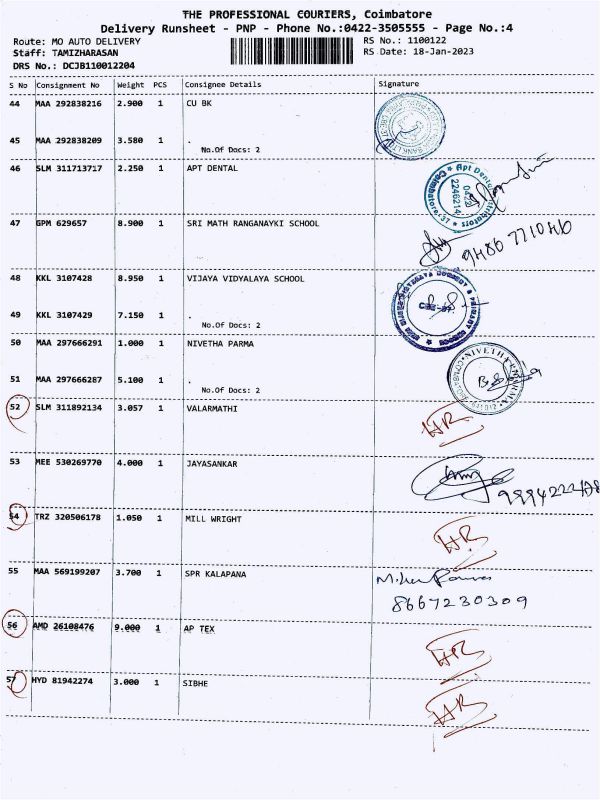 THE PROFESSIONAL COURIERS, Coimbatore
Delivery Runsheet - PNP - Phone No.:0422-3505555 - Page No.:4
Route: MO AUTO DELIVERY RS No.: 1100122
Staff: TAMIZHARASAN RS Date: 18-Jan-2023
DRS No.: DCJB110012204
S No Consignment No Weight PCS Consignee Details Signature
44 MAA 292838216 2.900 1 CU BK
45 MAA 292838209 3.580 1 .
No.Of Docs: 2
46 SLM 311713717 2.250 1 APT DENTAL
Apt Dental
0422
2246214
Coimbatore-37
47 GPM 629657 8.900 1 SRI MATH RANGANAYKI SCHOOL
9486771046
48 KKL 3107428 8.950 1 VIJAYA VIDYALAYA SCHOOL
49 KKL 3107429 7.150 1 .
No.Of Docs: 2
50 MAA 297666291 1.000 1 NIVETHA PARMA
NIVETHA PHARMA
51 MAA 297666287 5.100 1 .
No.Of Docs: 2
52 SLM 311892134 3.057 1 VALARMATHI
HR
53 MEE 530269770 4.000 1 JAYASANKAR
54 TRZ 320506178 1.050 1 MILL WRIGHT
HR
55 MAA 569199207 3.700 1 SPR KALAPANA
8667230309
56 AMD 26108476 9.000 1 AP TEX
HR
57 HYD 81942274 3.000 1 SIBHE
HR